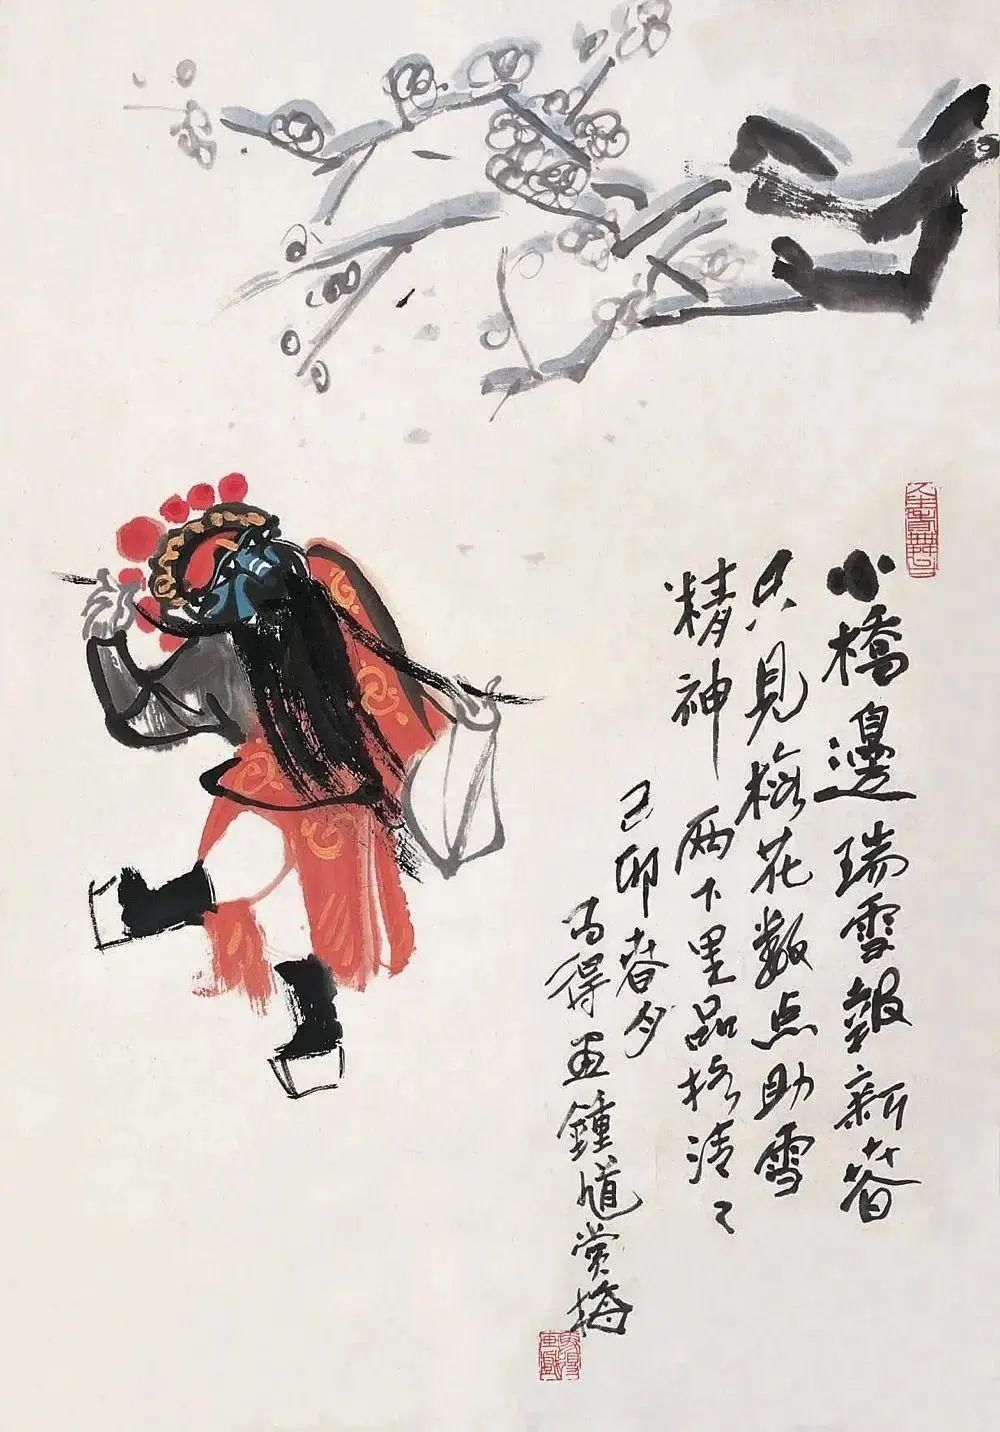 小橋邊瑞雪報新春
只見梅花數点助雪
精神两下里品格清
己卯春夕
马得画鍾馗赏梅